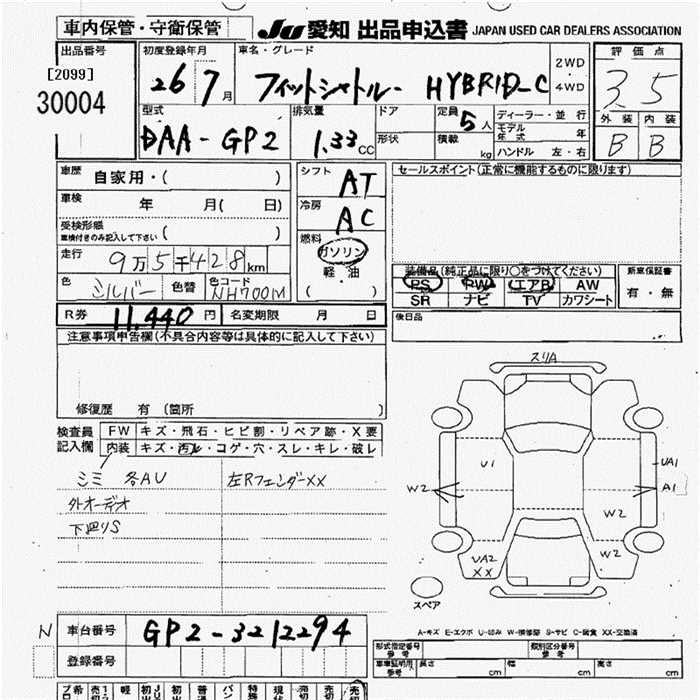 車内保管・守衛保管
JU 愛知 出品申込書 JAPAN USED CAR DEALERS ASSOCIATION
出品番号
[2099]
30004
初度登録年月
26 7月
車名・グレード
フィットシャトル- HYBRID-C
2WD
4WD
評価点
3.5
外装 内装
B B
型式
DAA-GP2
排気量
1.33cc
ドア
形状
定員
5人
積載
kg
ディーラー・並行
モデル年式 年
ハンドル 左・右
車歴 自家用・( )
車検 年 月( 日)
受検形態
車検付きのみ記入して下さい ( )
走行 9万5千428km
色 シルバー 色替 色コード NH700M
シフト AT
冷房 AC
燃料
ガソリン
軽・油
( )
セールスポイント(正常に機能するものに限ります)
装備品(純正品に限り○をつけてください)
PS PW エアB AW
SR ナビ TV カワシート
新車保証書
有・無
後日品
R券 11,440円 名変期限 月 日
注意事項申告欄(不具合内容等は具体的に記入して下さい)
修復歴 有 (箇所 )
検査員記入欄
FW キズ・飛石・ヒビ割・リペア跡・X要
内装 キズ・汚レ・コゲ・穴・スレ・キレ・破レ
シミ 各AU 左RフェンダーXX
外オーディオ
下廻りS
スリA
U1
UA1
A1
W2
W2
W2
UA2
XX
スペア
A-キズ E-エクボ U-凹み W-補修跡 S-サビ C-腐食 XX-交換済
N 車台番号 GP2-3212294
登録番号
形式指定番号
参考
類別区分番号
参考
車庫証明用
参考
長さ cm 幅 cm 高さ cm